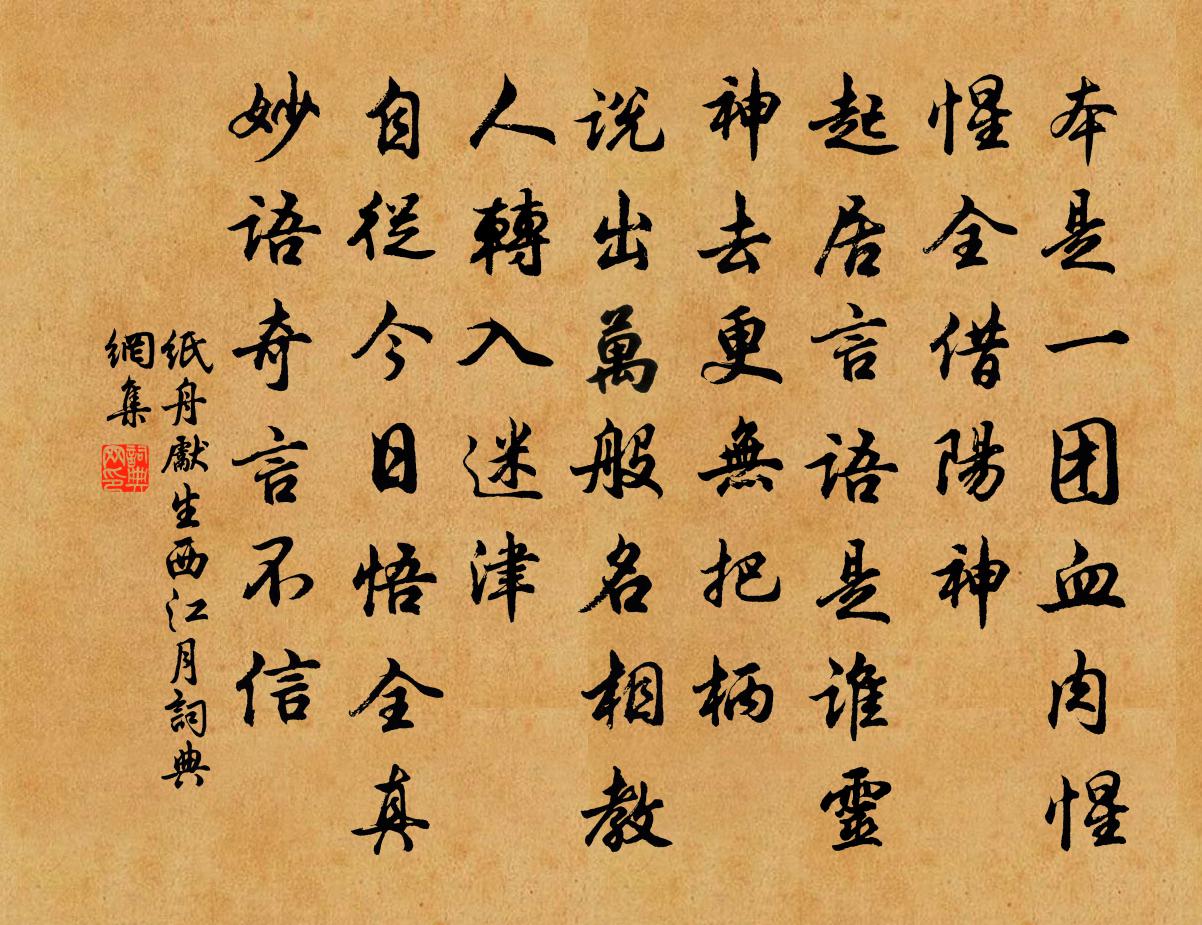 本是一团血肉惺
惺全借陽神
起居言語是誰靈
神去更無把柄
説出萬般名相教
人轉入迷津
自從今日悟全真
妙語奇言不信
紙舟獻生西江月詞典
網集
詞典網印